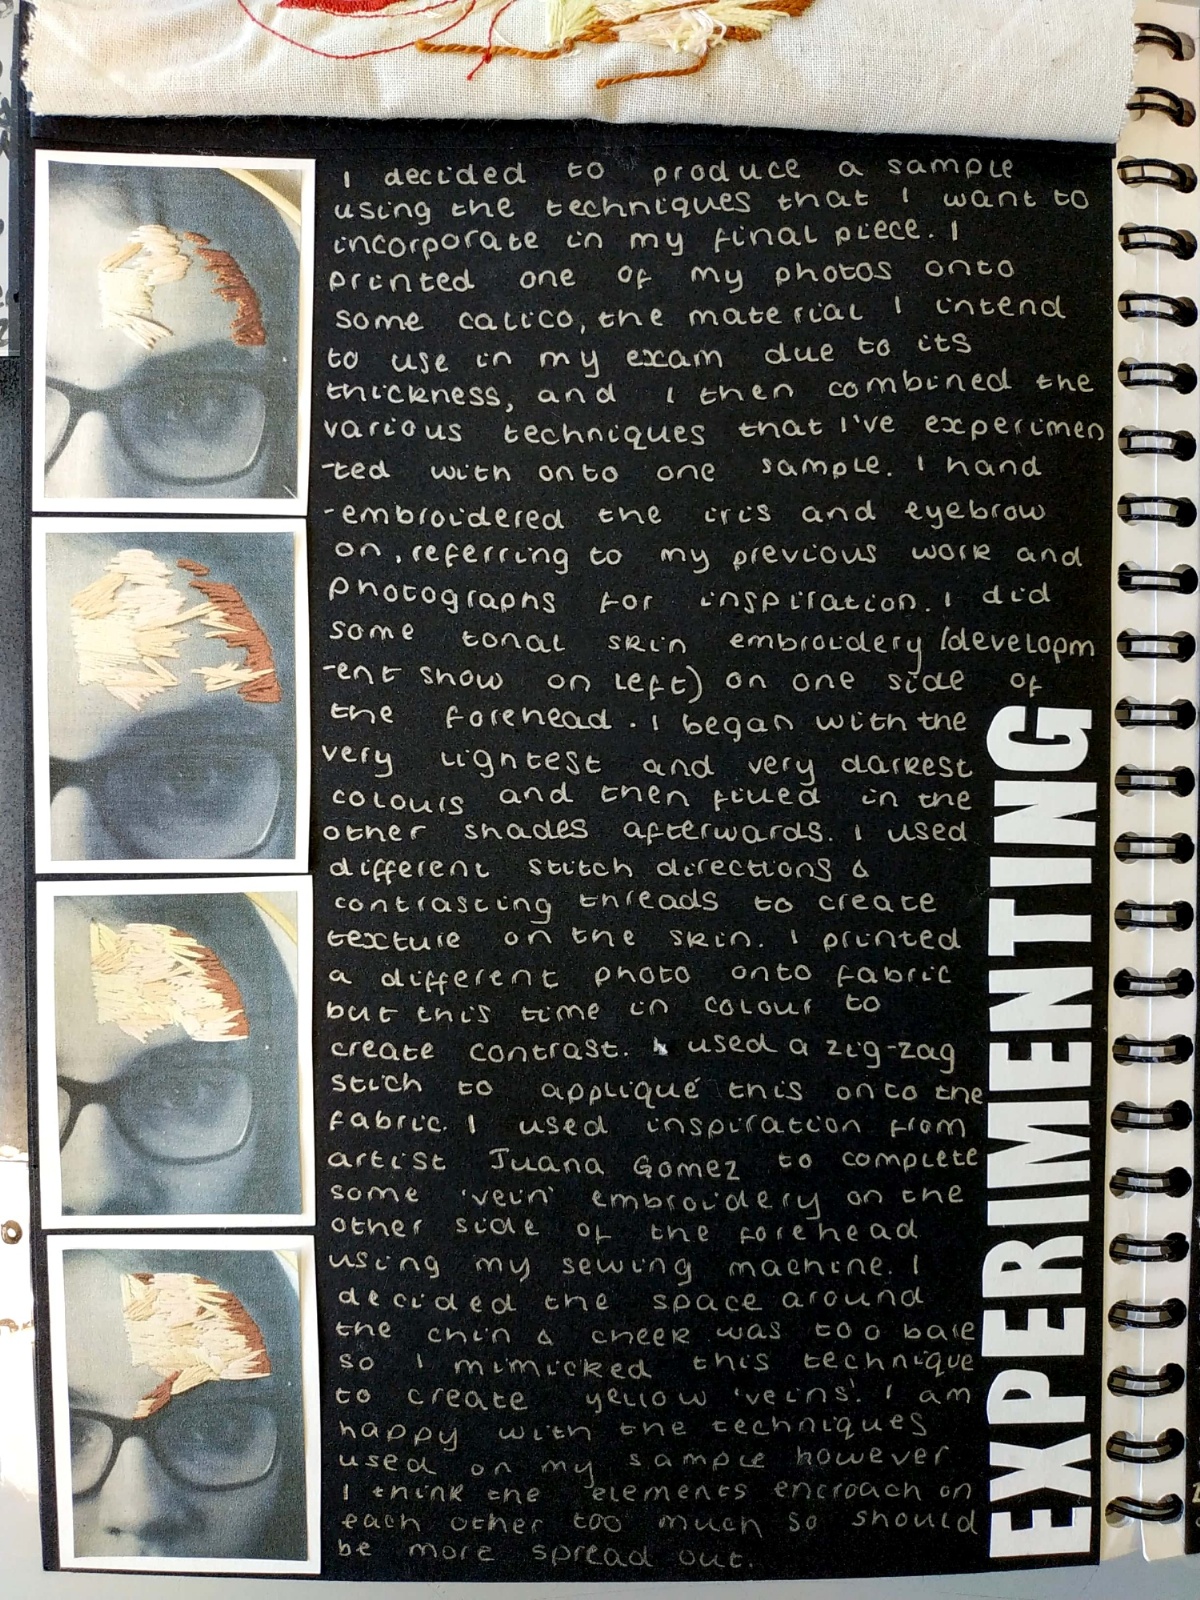 I decided to produce a sample
using the techniques that I want to
incorporate in my final piece. I
printed one of my photos onto
some calico, the material I intend
to use in my exam due to its
thickness, and I then combined the
various techniques that I've experimen
-ted with onto one sample. I hand
-embroidered the iris and eyebrow
on, referring to my previous work and
photographs for inspiration. I did
some tonal skin embroidery (developm
-ent show on left) on one side of
the forehead. I began with the
very lightest and very darkest
colours and then filled in the
other shades afterwards. I used
different stitch directions &
contrasting threads to create
texture on the skin. I printed
a different photo onto fabric
but this time in colour to
create contrast. I used a zig-zag
stich to appliqué this onto the
fabric. I used inspiration from
artist Juana Gomez to complete
some 'vein' embroidery on the
other side of the forehead
using my sewing machine. I
decided the space around
the chin & cheek was too bare
so I mimicked this technique
to create yellow 'veins'. I am
happy with the techniques
used on my sample however
I think the elements encroach on
each other too much so should
be more spread out.
EXPERIMENTING